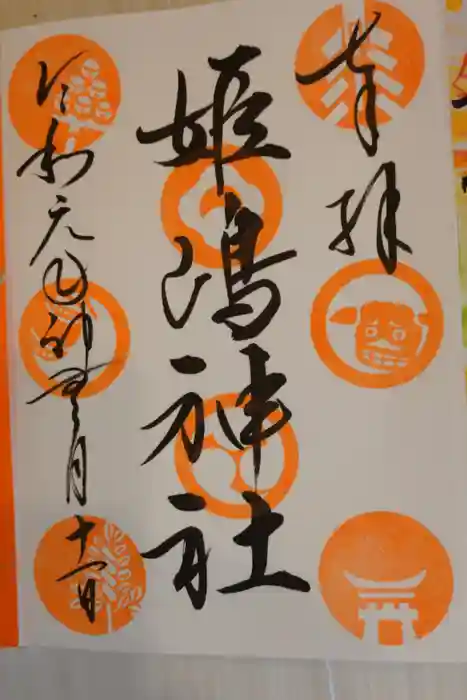 奉拝
姫嶋神社
令和元年神無月十一日